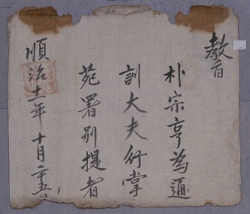 教旨
朴宗亨為通
訓大夫行掌
苑署別提者
順治十一年十月二十五日